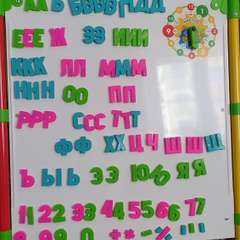 АА Ь ВВВВ ДДД
ЕЕЕ Ж ЗЗ ИИИ
ККК ЛЛ МММ
ННН ОО ПП
РРР ССС ТТ
ФФ ХХ ЦЧ ШШЩ
Ъ Ы Ь ЭЭ ЮЮ ЯЯ
11 22 33 44 55 66 77
88 99 0